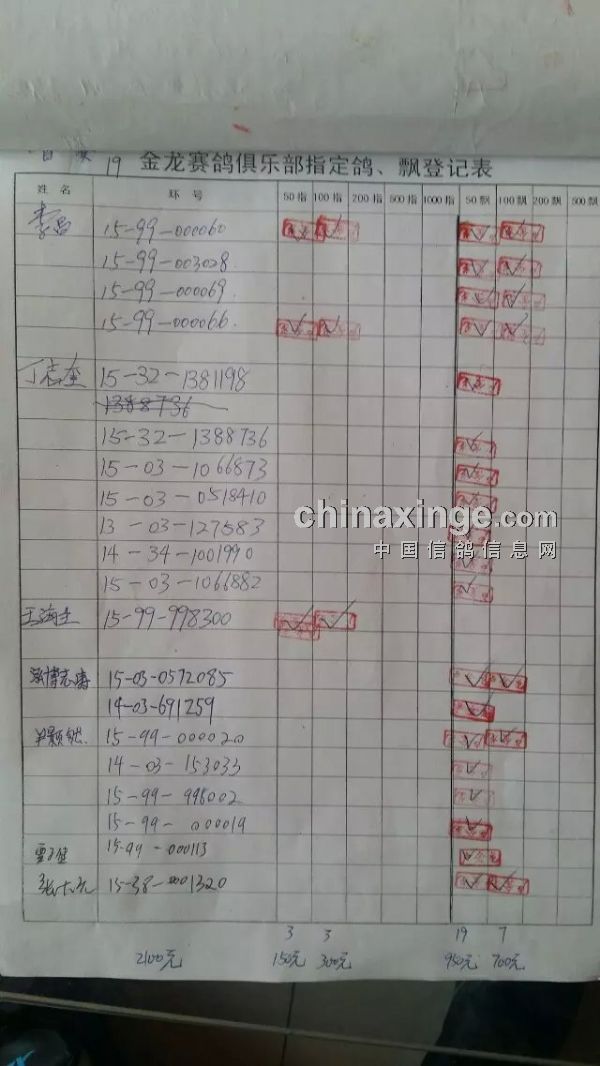 19 金龙赛鸽俱乐部指定鸽、飘登记表
姓名 环号 50指 100指 200指 500指 1000指 50飘 100飘 200飘 500飘
15-99-000060
15-99-003028
15-99-000069
15-99-000066
丁志奎 15-32-1381198
1388736
15-32-1388736
15-03-1066873
15-03-0518410
13-03-127583
14-34-1001990
15-03-1066882
15-99-998300
15-03-0572085
14-03-691259
15-99-000020
14-03-153033
15-99-996002
15-99-000019
15-99-000113
15-38-0001320
3 3 19 7
2100元 150元 300元 950元 700元
chinaxinge.com
中国信鸽信息网